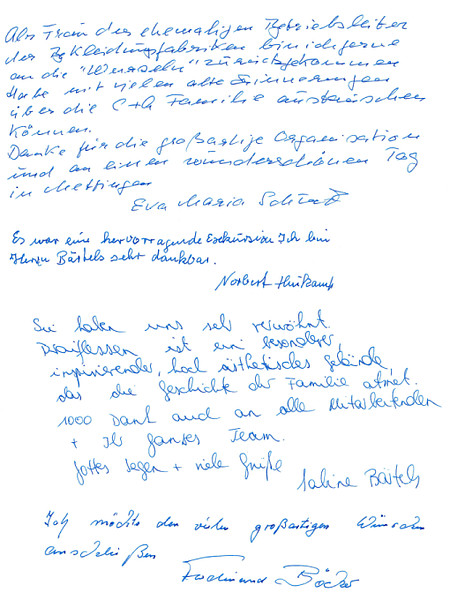 Als Frau des ehemaligen Betriebsleiter
der Bekleidungsfabriken bin ich gerne
an die "Wurzeln" zurückgekommen
Habe mit vielen alte Erinnerungen
über die C+A Familie austauschen
können.
Danke für die großartige Organisation
und an einen wunderschönen Tag
in Mettingen
Eva Maria
Es war eine hervorragende Exkursion Ich bin
Herrn Bärtels sehr dankbar.
Norbert
Sie haben uns sehr verwöhnt.
Draiflessen ist ein besonderer,
inspirierender, hoch ästhetisches Gebäude,
das die Geschichte der Familie atmet.
1000 Dank auch an alle Mitarbeitenden
+ Ihr ganzes Team.
Gottes Segen + viele Grüße
Sabine Bärtels
Ich möchte den vielen großartigen
anschließen
Ferdinand